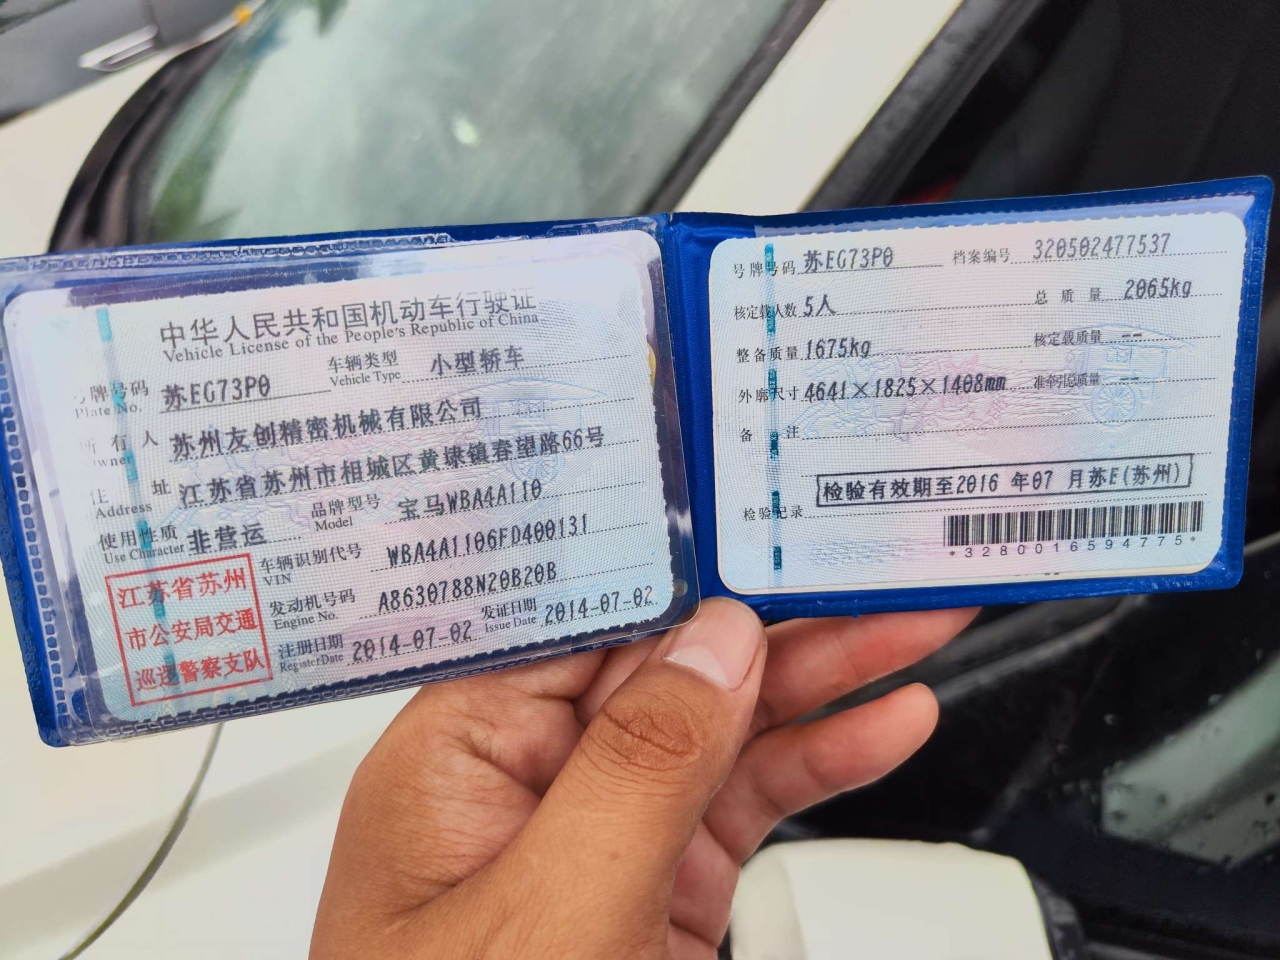 中华人民共和国机动车行驶证
Vehicle License of the People's Republic of China
号牌号码 苏EG73P0 车辆类型 小型轿车
Plate No. Vehicle Type
所有人 苏州友创精密机械有限公司
Owner
住址 江苏省苏州市相城区黄埭镇春望路66号
Address
使用性质 非营运 品牌型号 宝马WBA4A110
Use Character Model
江苏省苏州
市公安局交通
巡逻警察支队
车辆识别代号 WBA4A1106FD400131
VIN
发动机号码 A8630788N20B20B
Engine No.
注册日期 2014-07-02 发证日期 2014-07-02
Register Date Issue Date
号牌号码 苏EG73P0 档案编号 320502477537
核定载人数 5人 总质量 2065kg
整备质量 1675kg 核定载质量 --
外廓尺寸 4641×1825×1408mm 准牵引总质量 --
备注
检验有效期至2016 年07 月苏E(苏州)
检验记录
*3280016594775*